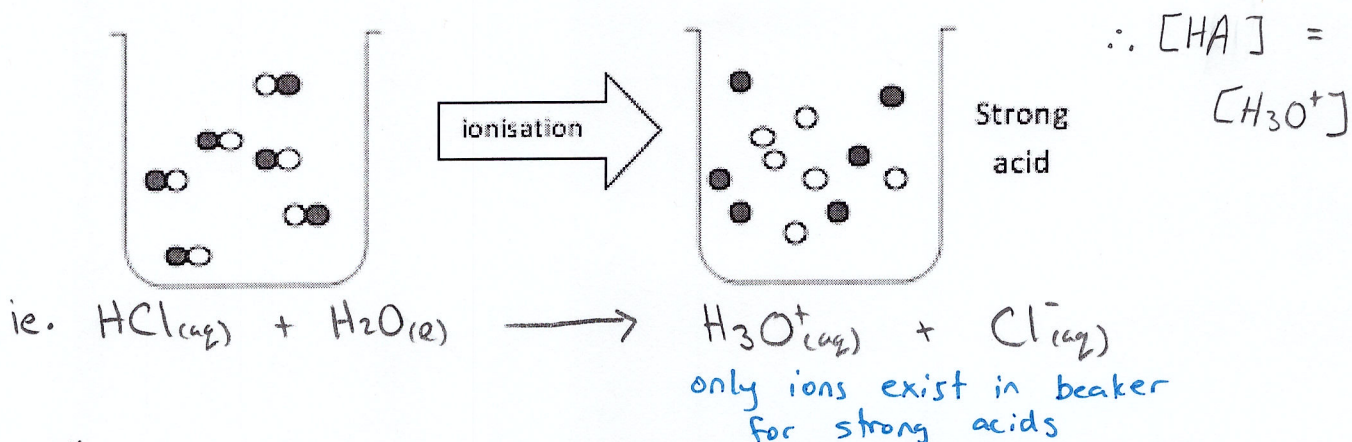 ∴ [HA] =
[H₃O⁺]
ionisation
Strong
acid
ie. HCl(aq) + H₂O(l) ⟶ H₃O⁺(aq) + Cl⁻(aq)
only ions exist in beaker
for strong acids